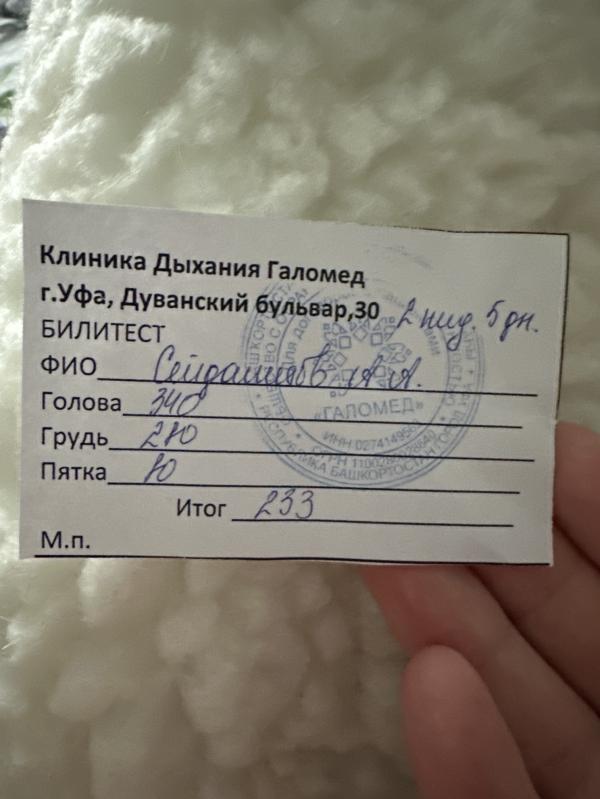 Клиника Дыхания Галомед
г.Уфа, Дуванский бульвар,30
2 нид. 5 дн.
БИЛИТЕСТ
ФИО А.А.
Голова 340
Грудь 280
Пятка 80
Итог 233
М.п.
«ГАЛОМЕД»
РЕСПУБЛИКА БАШКОРТОСТАН ГОРОД УФА